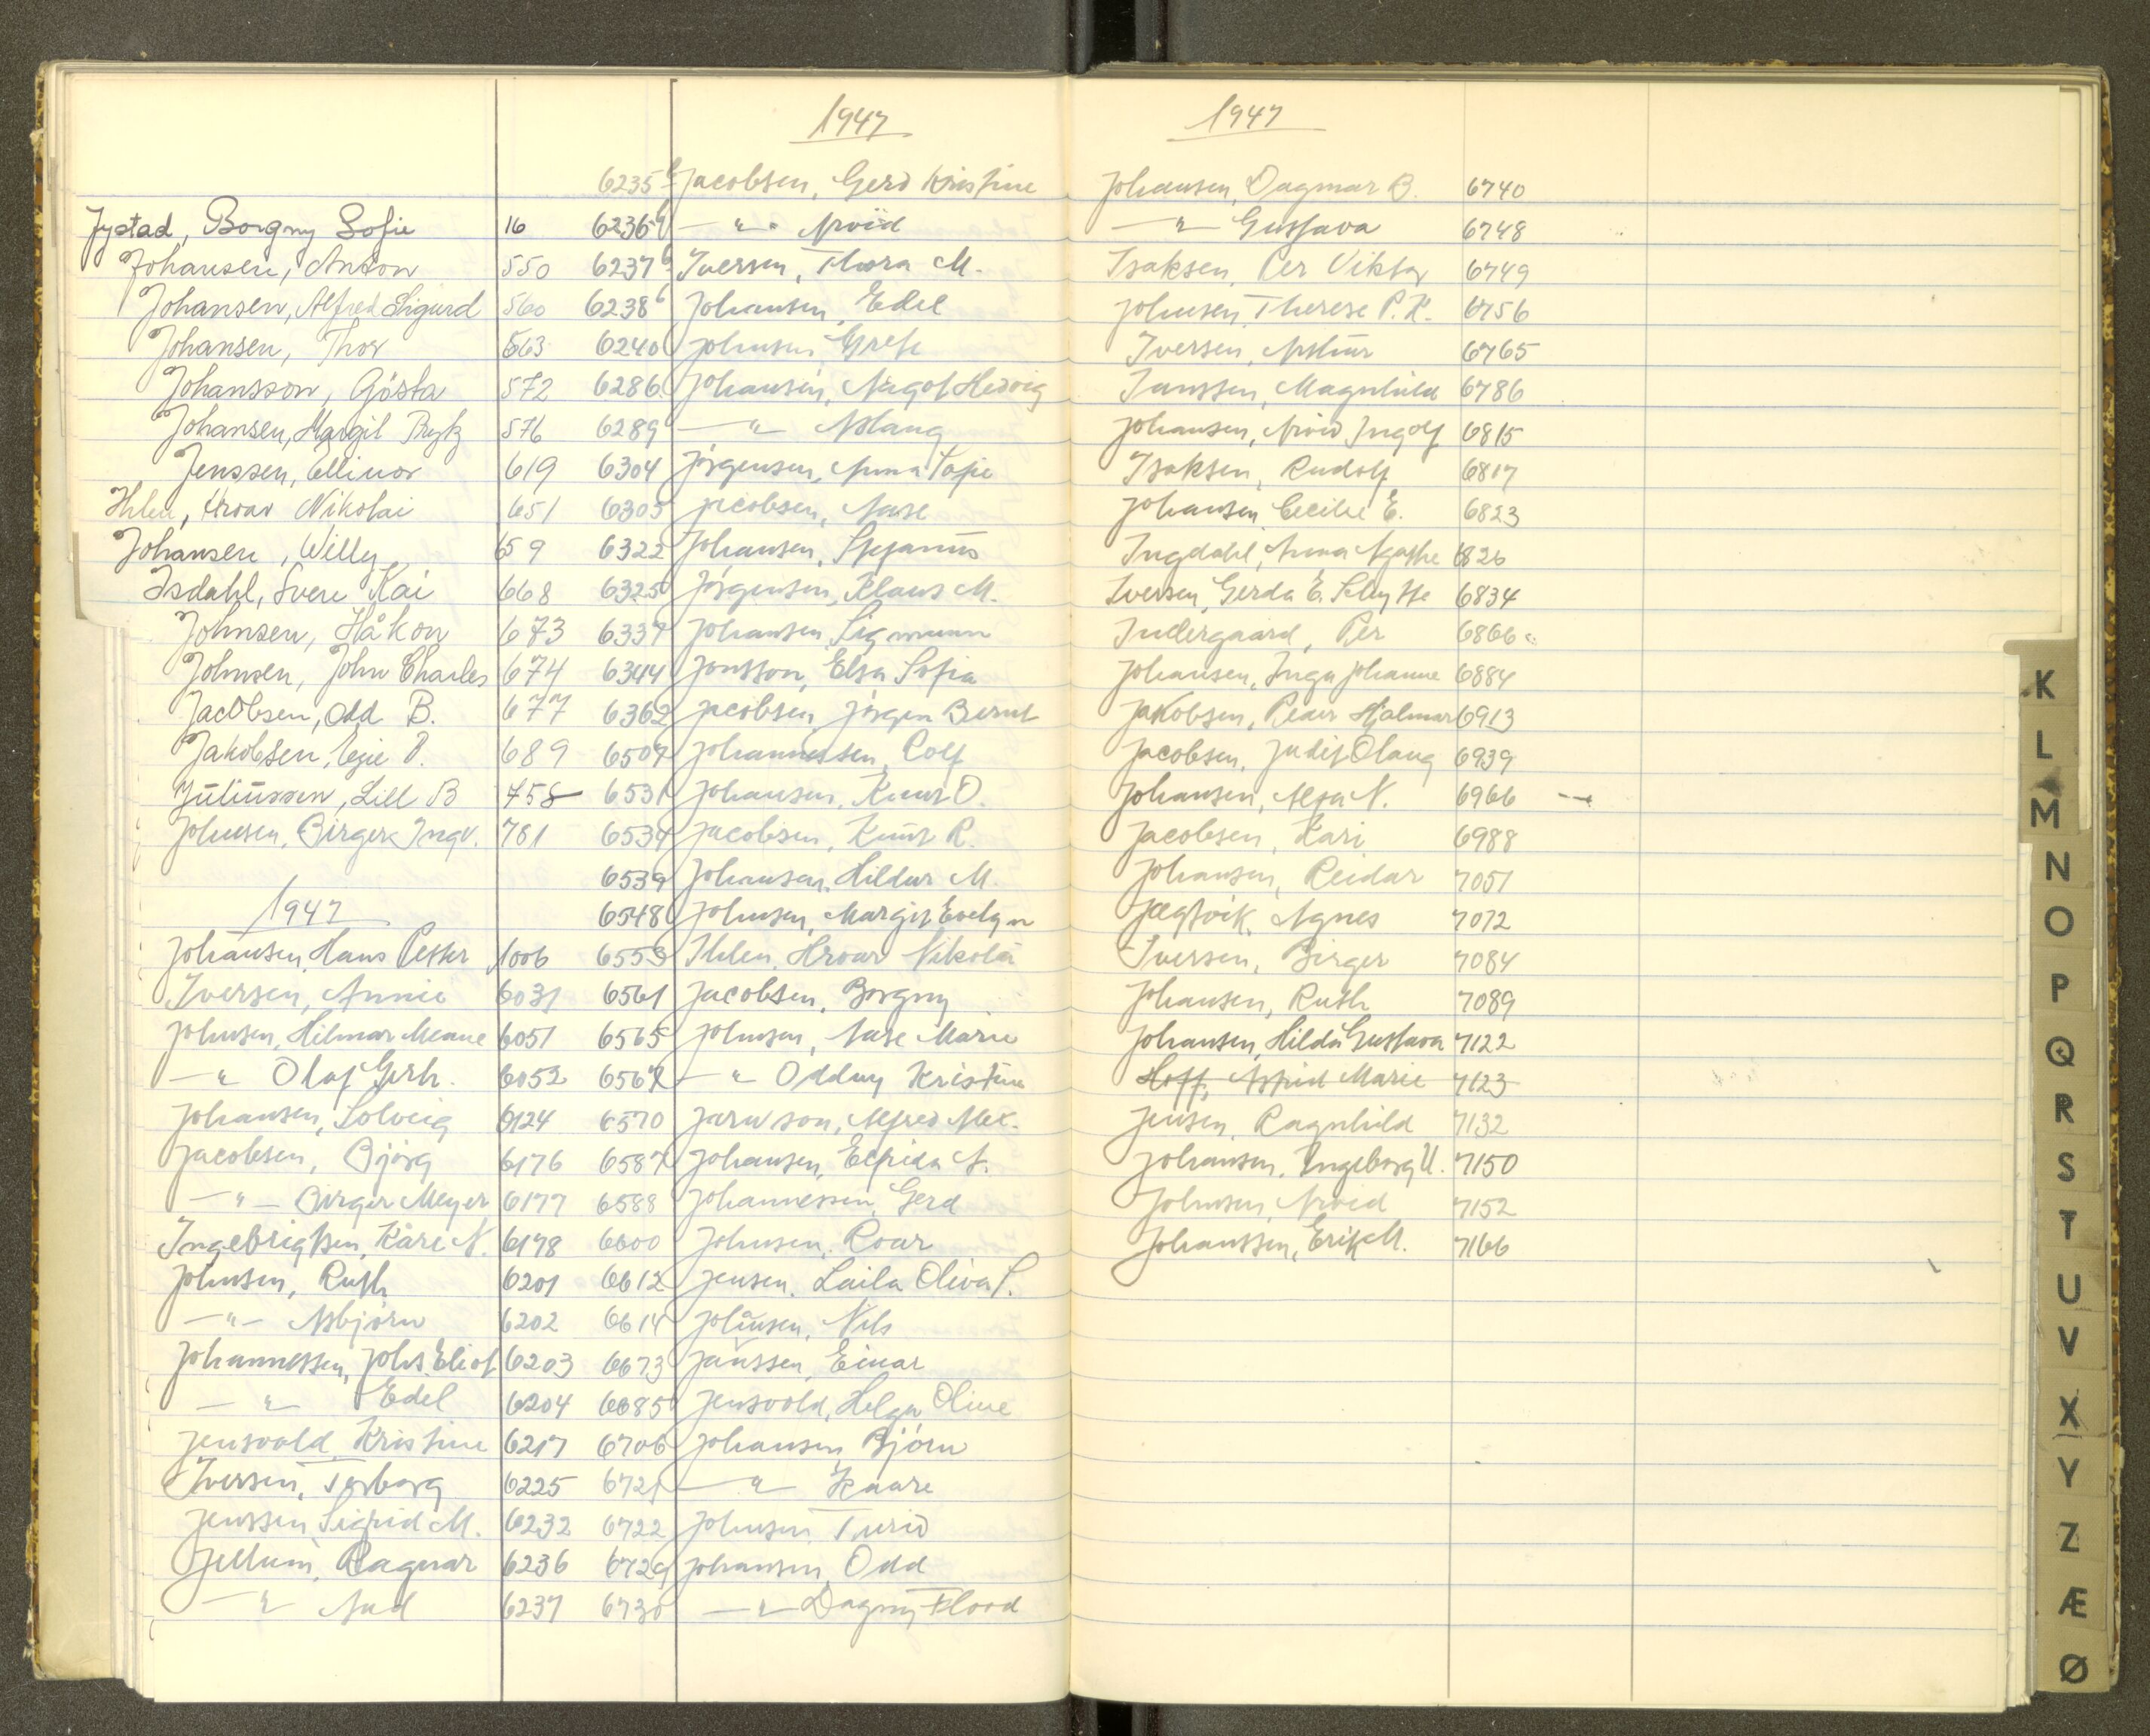 Jystad, Borgny Sofie 16
Johansen, Anton 550
Johansen, Alfred Sigurd 560
Johansen, Thor 563
Johansson, Gösta 572
Johansen, Margit 576
Jenssen, Ellinor 619
Ihlen, Hroar Nikolai 651
Johansen, Willy 659
Isdahl, Svere Kai 668
Johnsen, Håkon 673
Johnsen, John Charles 674
Jacobsen, Odd B. 677
Jakobsen, 689
Juliussen, Lill B 758
Johnsen, Birger Ingv. 781
1947
Johansen, Hans Petter 1006
Iversen, Annie 6031
Johnsen, Hilmar 6051
—"— Olaf Gerh. 6052
Johansen, Solveig 6124
Jacobsen, Bjørg 6176
—"— Birger Meyer 6177
Ingebrigtsen, Kåre N. 6178
Johnsen, Ruth 6201
—"— Asbjørn 6202
Johannessen, Johs. Eliot 6203
—"— Edel 6204
Jensvold Kristine 6217
Iversen, Torborg 6225
Jenssen Sigrid M. 6232
Jellum, Ragnar 6236
—"— Aud 6237
1947
6235 Jacobsen, Gerd Kristine
6236 —"— Arvid
6237 Iversen, Thora M.
6238 Johansen, Edel
6240 Johnsen Grete
6286 Johansen, Hedvig
6289 —"— Aslaug
6304 Jörgensen, Anna Sofie
6305 Jacobsen, Aase
6322 Johansen, Stefanus
6325 Jörgensen, Klaus M.
6337 Johansen, Sigmunn
6344 Jonsson, Elsa Sofia
6362 Jacobsen, Jörgen Bernt
6507 Johannessen, Rolf
6531 Johansen, Knut O.
6534 Jacobsen, Knut R.
6539 Johansen, Hildur M.
6548 Johnsen, Margit Evelyn
6553 Ihlen, Hroar Nikolai
6561 Jacobsen, Borgny
6565 Johnsen, Aase Marie
6567 —"— Oddny Kristine
6570 Alfred Alex.
6587 Johansen, Elfrida A.
6588 Johannessen, Gerd
6600 Johnsen, Roar
6612 Jensen, Laila Oliva S.
6614 Johnsen, Nils
6673 Janssen, Einar
6685 Jensvold, Helga Oline
6706 Johansen, Björn
6721 —"— Kaare
6722 Johnsen Turid
6729 Johansen, Odd
6730 —"— Dagny Flood
1947
Johansen, Dagmar B. 6740
—"— Gustava 6748
Isaksen, Per Viktor 6749
Johnsen, Therese P.K. 6756
Iversen, Arthur 6765
Janssen, Magnhild 6786
Johansen, Arvid Ingolf 6815
Isaksen, Rudolf 6817
Johansen, Cecilie E. 6823
Ingdahl, Anna Agathe 6826
Iversen, Gerda E. Schytte 6834
Indergaard, Per 6866
Johansen, Inga Johanne 6884
Jakobsen, Peder Hjalmar 6913
Jacobsen, Judit Olaug 6939
Johansen, Alfa N. 6966
Jacobsen, Kari 6988
Johansen, Reidar 7051
Jegtvik, Agnes 7072
Iversen, Birger 7084
Johansen, Ruth 7089
Johansen, Hilda Gustava 7122
Hoff, Astrid Marie 7123
Jensen, Ragnhild 7132
Johansen, Ingeborg U. 7150
Johnsen, Arvid 7152
Johanssen, Erik M. 7166
K
L
M
N
O
P
Q
R
S
T
U
V
X
Y
Z
Æ
Ø